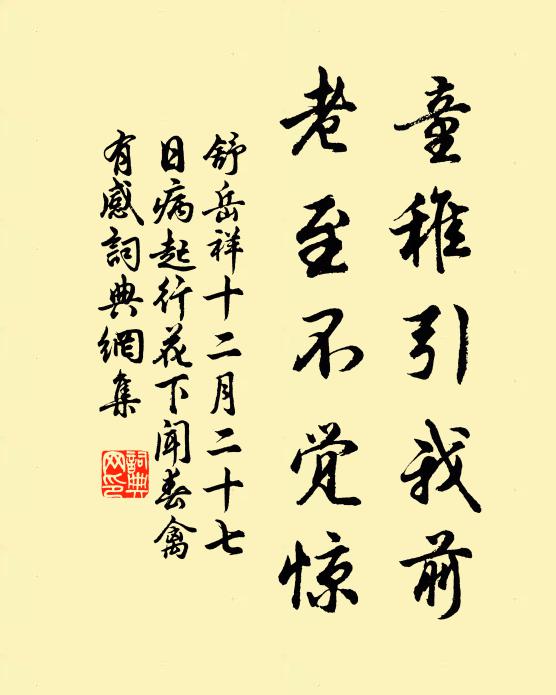 童稚引我前
老至不觉惊
舒岳祥十二月二十七
日病起行花下闻春禽
有感詞典網集
詞典网印